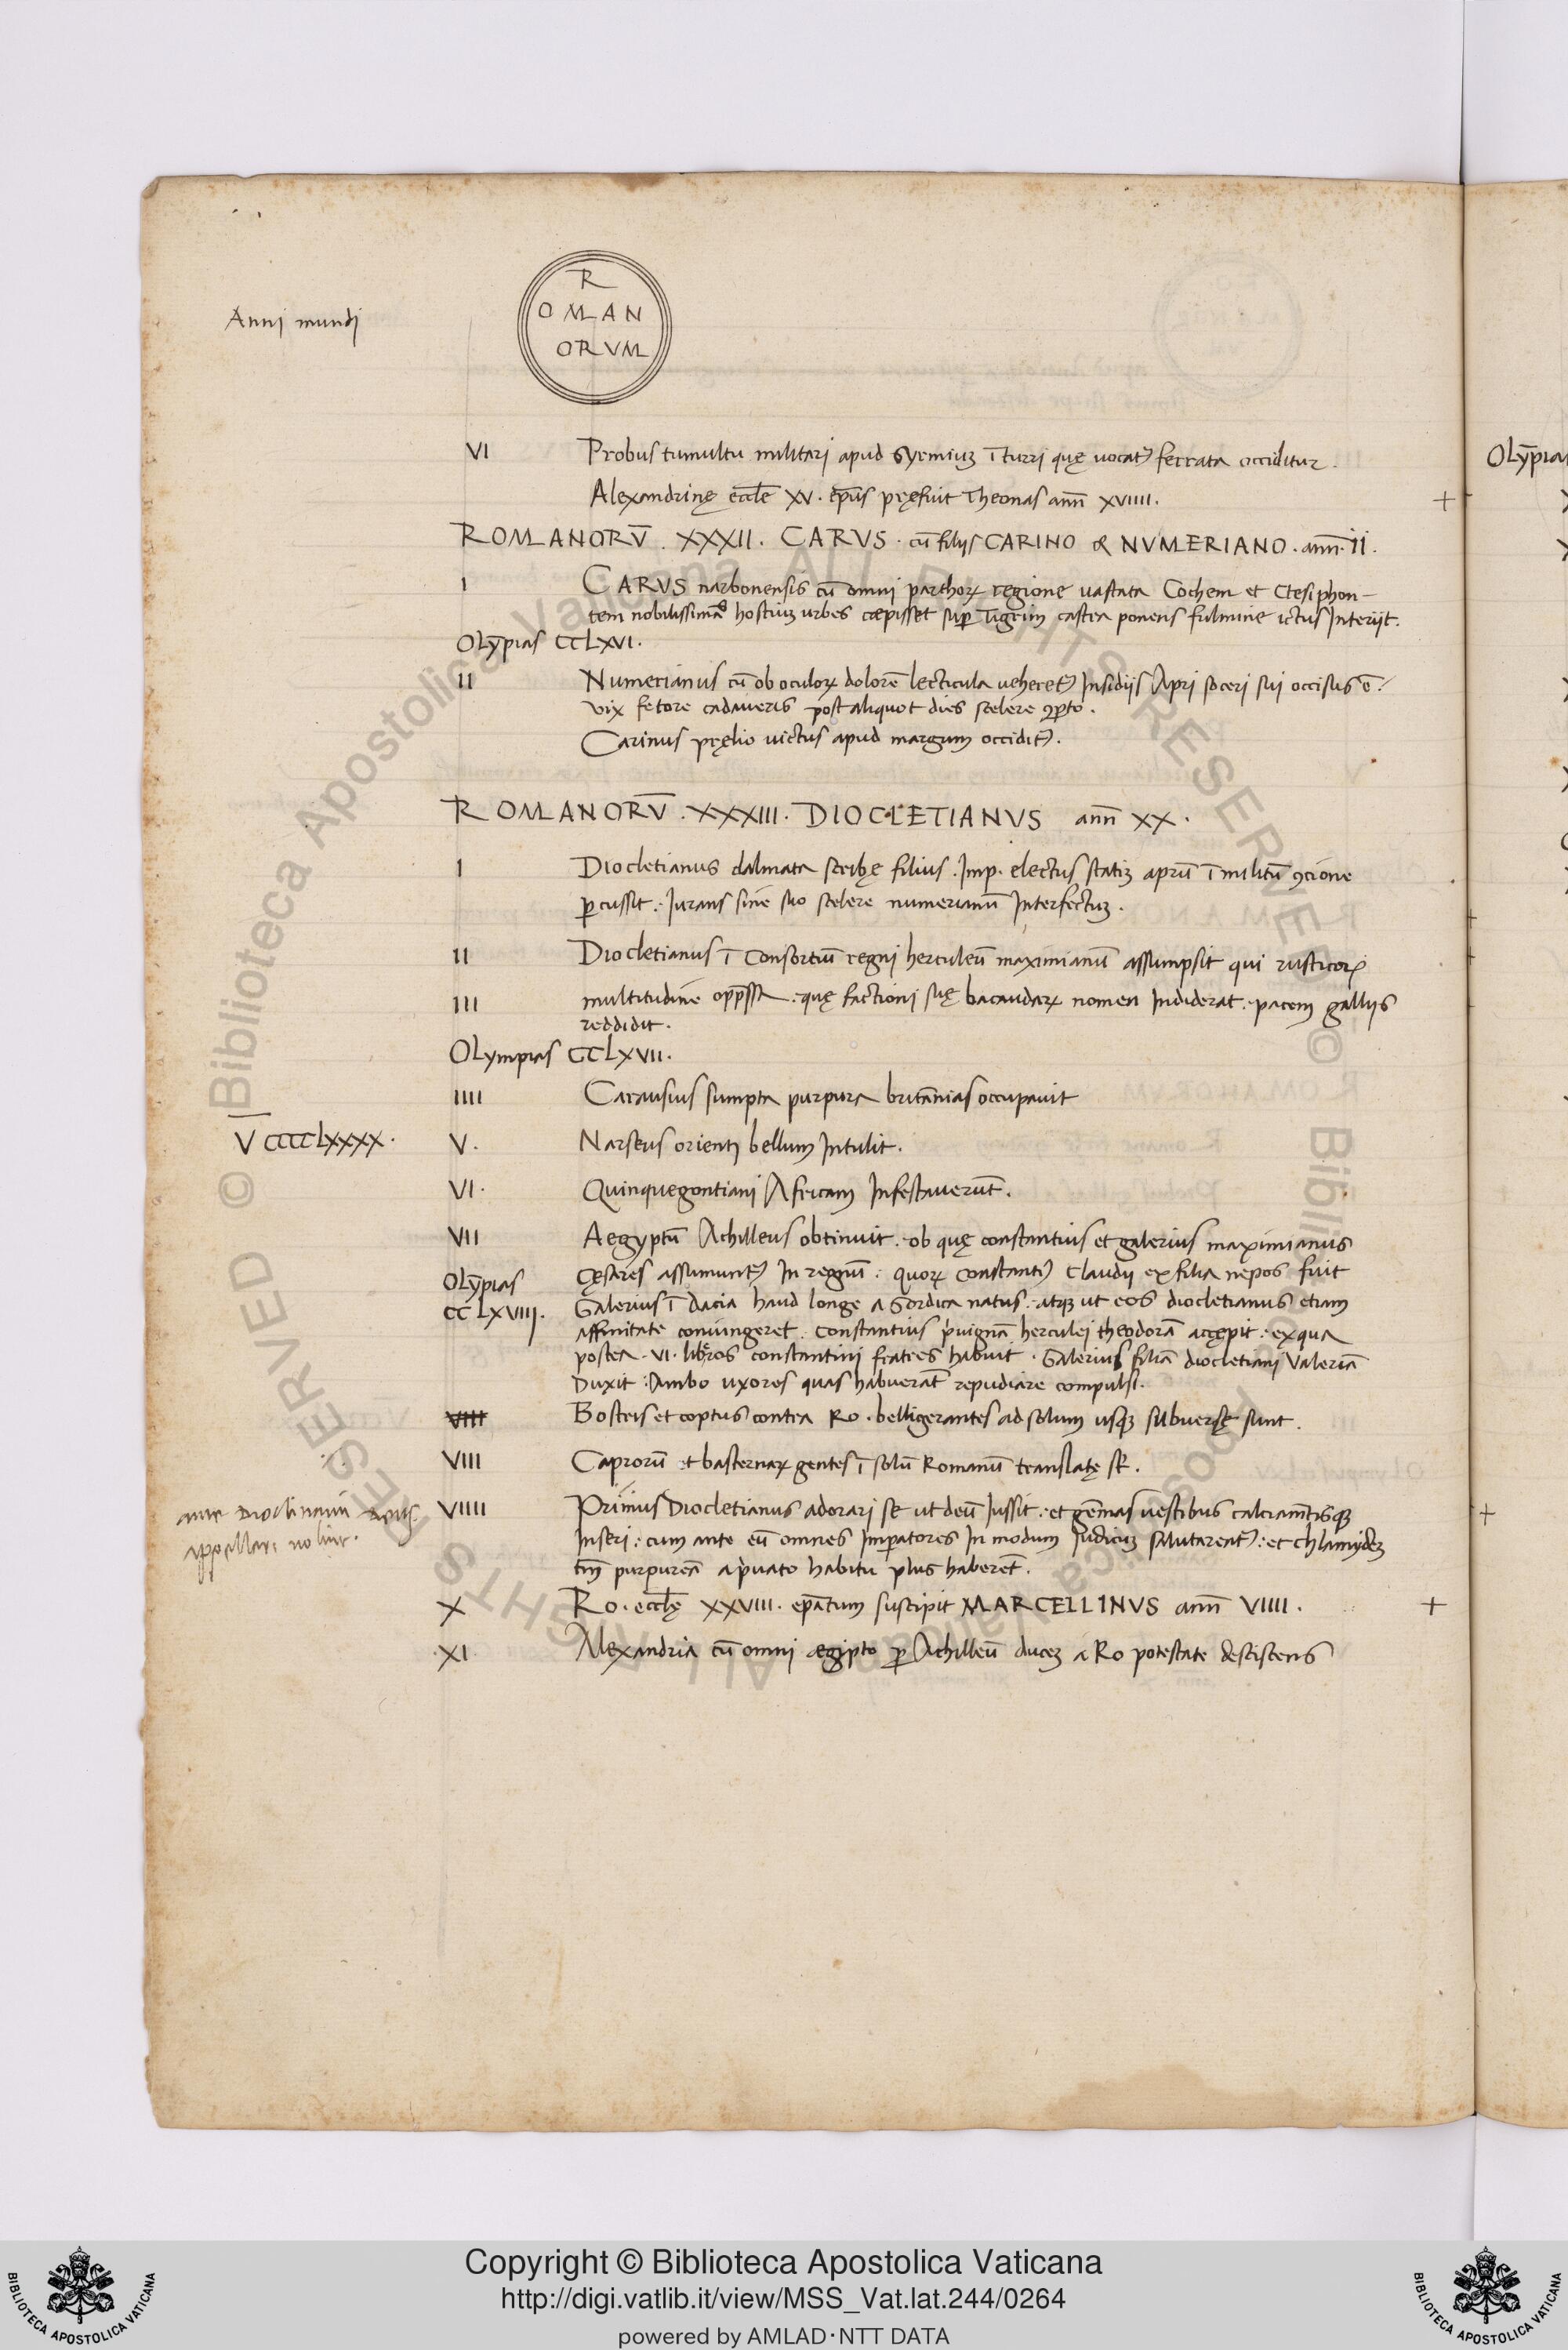 Anni mundi
R
OMAN
ORVM
VI Probus tumultu militari apud Syrmiuʒ ī turri quę uocatᷣ ferrata occiditur.
Alexandrinę eccl̄e XV. ep̄us pręfuit Theonas ann̄ XVIIII.
ROMANORV̄. XXXII. CARVS. cū filijs CARINO & NVMERIANO. ann̄. II.
I CARVS narbonensis cū omni parthoꝝ regione uastata Cochem et Ctesiphon-
tem nobilissimas hostiuʒ urbes cœpisset suꝑ Tigrim castra ponens fulmine ictus Interijt.
OLȳpias CCLXVI.
II Numerianus cū ob oculoꝝ dolorē lecticula ueheretᷣ Insidijs Apri soceri sui occisus ē.
Vix fetore cadaueris post aliquot dies scelere ꝯꝑto.
Carinus pręlio uictus apud margum occiditᷣ.
ROMANORV̄. XXXIII. DIOCLETIANVS ann̄ XX.
I Diocletianus dalmata scribę filius. Imp. electus statiʒ aprū ī militū ꝯcione
ꝑcussit: Iurans sine suo scelere numerianū Interfectuʒ.
II Diocletianus ī Consortiū regni herculeū maximianū assumpsit qui rusticoꝝ
III multitudine opp̄ssa. quę factioni suę bacaudaꝝ nomen Indiderat. pacem gallijs
reddidit.
OLympias CCLXVII.
IIII Carausius sumpta purpura britānias occupauit
V̄ CCCCLXXXX.
V. Narseus orienti bellum Intulit.
VI. Quinquegontiani Africam Infestauerūt.
VII Aegyptū Achilleus obtinuit. ob quę constantius et galerius maximianus
OLȳpias Cęsares assumuntᷣ In regnū: quoꝝ Constantiᷣ Claudij ex filia nepos fuit
CCLXVIII. Galerius ī Dacia haud longe a Sordica natus. atqꝫ ut eos diocletianus etiam
affinitate coniungeret. Constantius p̓uignā herculei theodorā accępit: ex qua
postea. VI. liberos constantini fratres habuit. Galerius filiā diocletiani Valeriā
Duxit: Ambo uxores quas habuerāt repudiare compulsi.
VIII Bosrris et coptus contra Ro. belligerantes ad solum usqꝫ subuersę sunt.
VIII Caprorū et basternaꝝ gentes ī solū Romanū translatę st̄.
VIIII Primus Diocletianus adorari se ut deū Iussit: et gēmas uestibus calciam̄tisqꝫ
Inseri: cum ante eū omnes Imꝑatores In modum Iudicuʒ salutarentᷣ: et chlamydeʒ
tm̄ purpureā a p̓uato habitu plus haberēt.
appellari
X Ro. eccl̄ę XXVIII. ep̄atum suscipit MARCELLINVS ann̄ VIIII.
XI Alexandria cū omni ægipto ꝑ Achilleū duceʒ a Ro potestate desciscens
OLȳpia
Copyright © Biblioteca Apostolica Vaticana
http://digi.vatlib.it/view/MSS_Vat.lat.244/0264
powered by AMLAD·NTT DATA